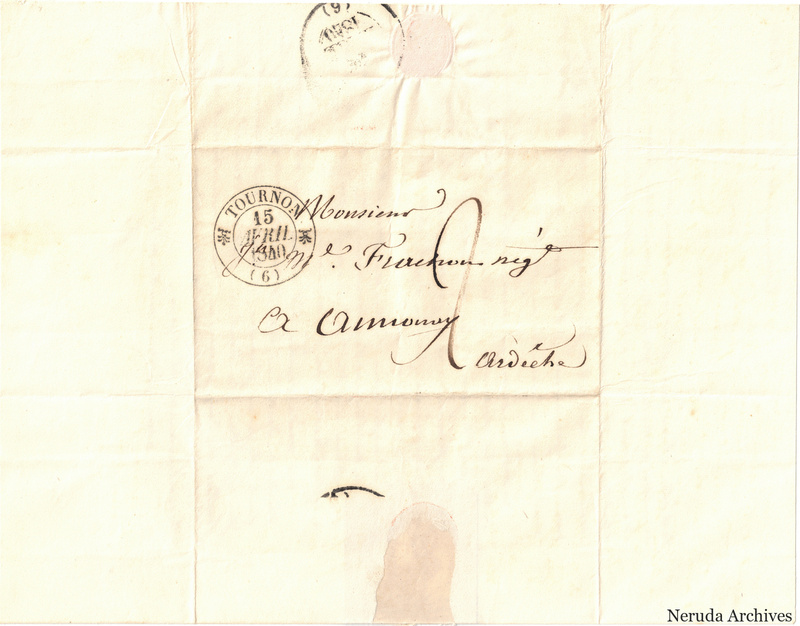 (6)
TOURNON
15
AVRIL
1840
(6)
Monsieur
Mel. Frachon négt
a annonay
2
ardèche
Neruda Archives